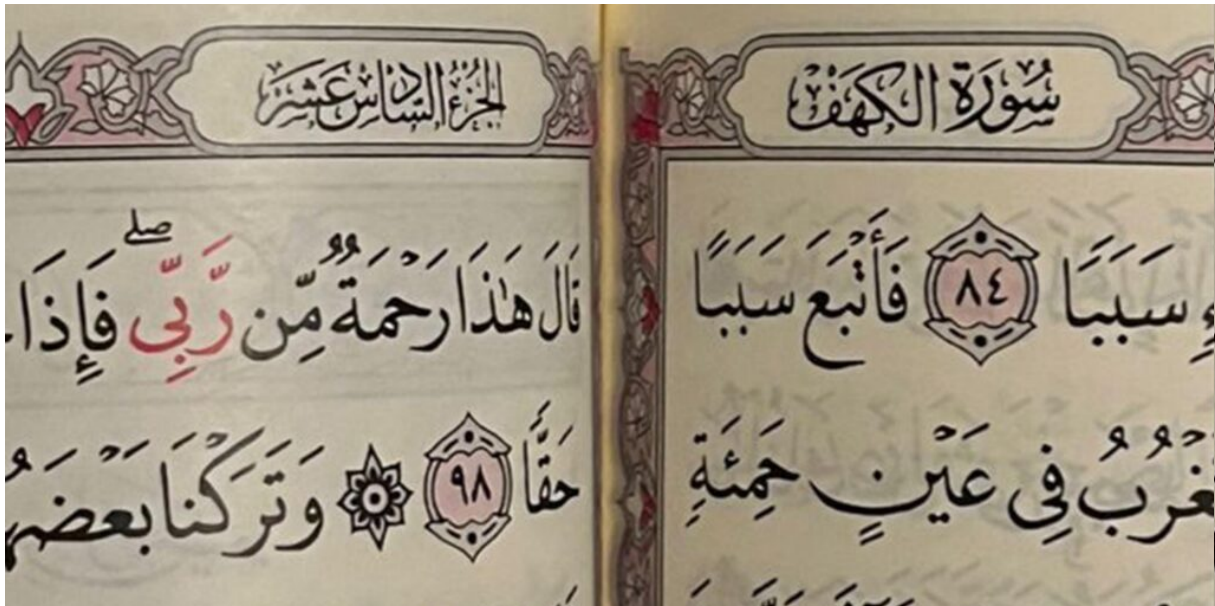 سُورَةُ الكَهْفِ
سَبَبًا ٨٤ فَأَتْبَعَ سَبَبًا
فِى عَيْنٍ حَمِئَةٍ
الجُزْءُ السَّادِسَ عَشَرَ
قَالَ هَٰذَا رَحْمَةٌ مِّن رَّبِّى ۖ فَإِذَا
حَقًّا ٩٨ ۞ وَتَرَكْنَا بَعْضَهُ